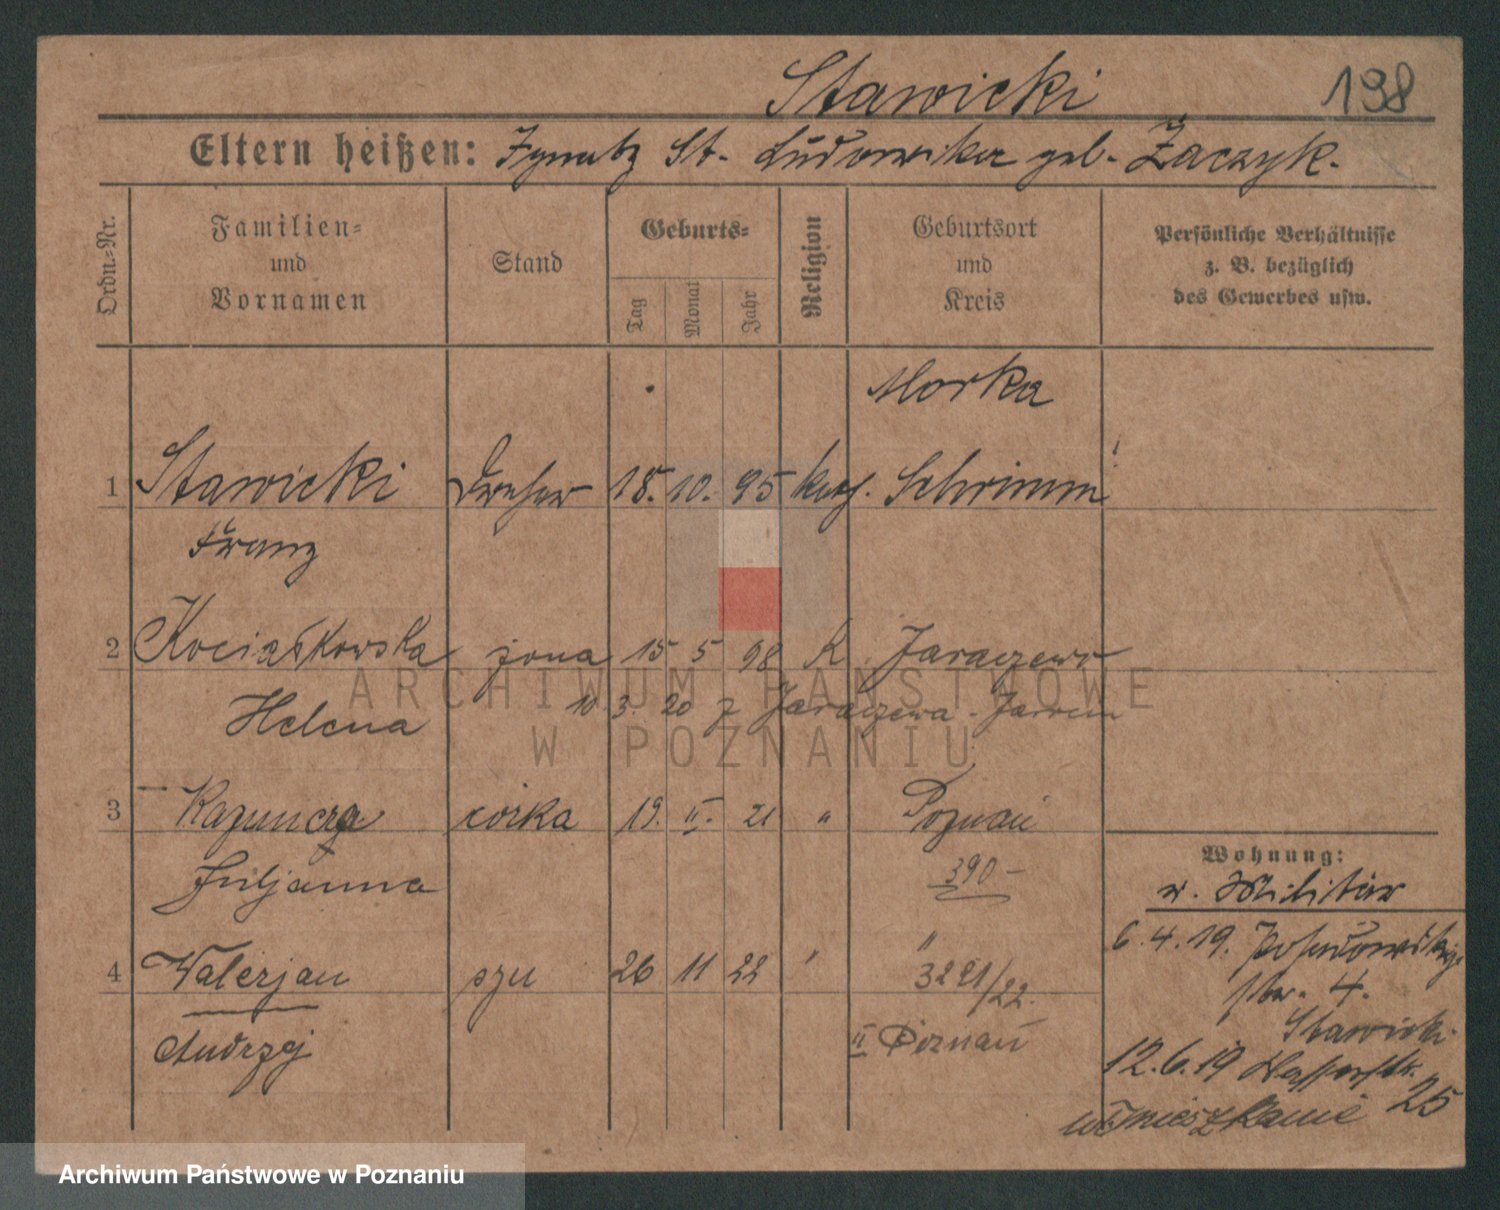 Stawicki 198
Eltern heißen: Ignatz St. Ludowika geb. Zaczyk.
Ordn.-Nr.
Familien- und Vornamen
Stand
Geburts-
Tag
Monat
Jahr
Religion
Geburtsort und Kreis
Persönliche Verhältnisse
z. B. bezüglich
des Gewerbes usw.
Morka
1 Stawicki Dreher 18. 10. 95 kath. Schrimm
Franz
2 Kociałkowska żona 15 5 98 K Jaraczewo
Helena 10. 3. 20 z Jaraczewa
3 Kazimiera córka 19. II. 21 "
Poznań
Juljanna 390-
"
4 Walerjan syn 26 11 22 " 3221/22.
Andrzej II Poznań
Wohnung:
v. Militär
6.4.19.
str. 4.
Stawicki
12.6.19 Wasserstr.
25
ARCHIWUM PAŃSTWOWE
W POZNANIU
Archiwum Państwowe w Poznaniu